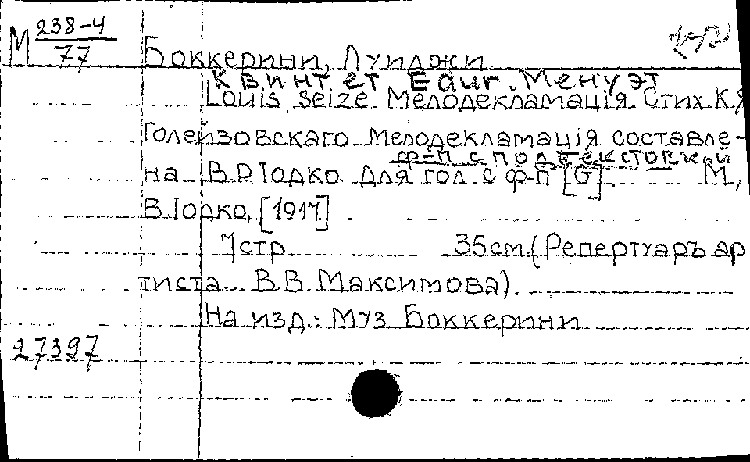 М 238-4
77
Боккерини, Луиджи
Квинтет E dur. Менуэт
Louis Seize. Мелодекламацiя. Стих. К.Я
Голейзовскаго. Мелодекламацiя составле-
ф-п с подтекстовкой
на В.Р. Iодко. Для гол. с ф-п [G] М.,
В. Iодко, [1917]
7 стр 35 см. (Репертуаръ ар
тиста В.В. Максимова).
На изд.: Муз Боккерини
27397